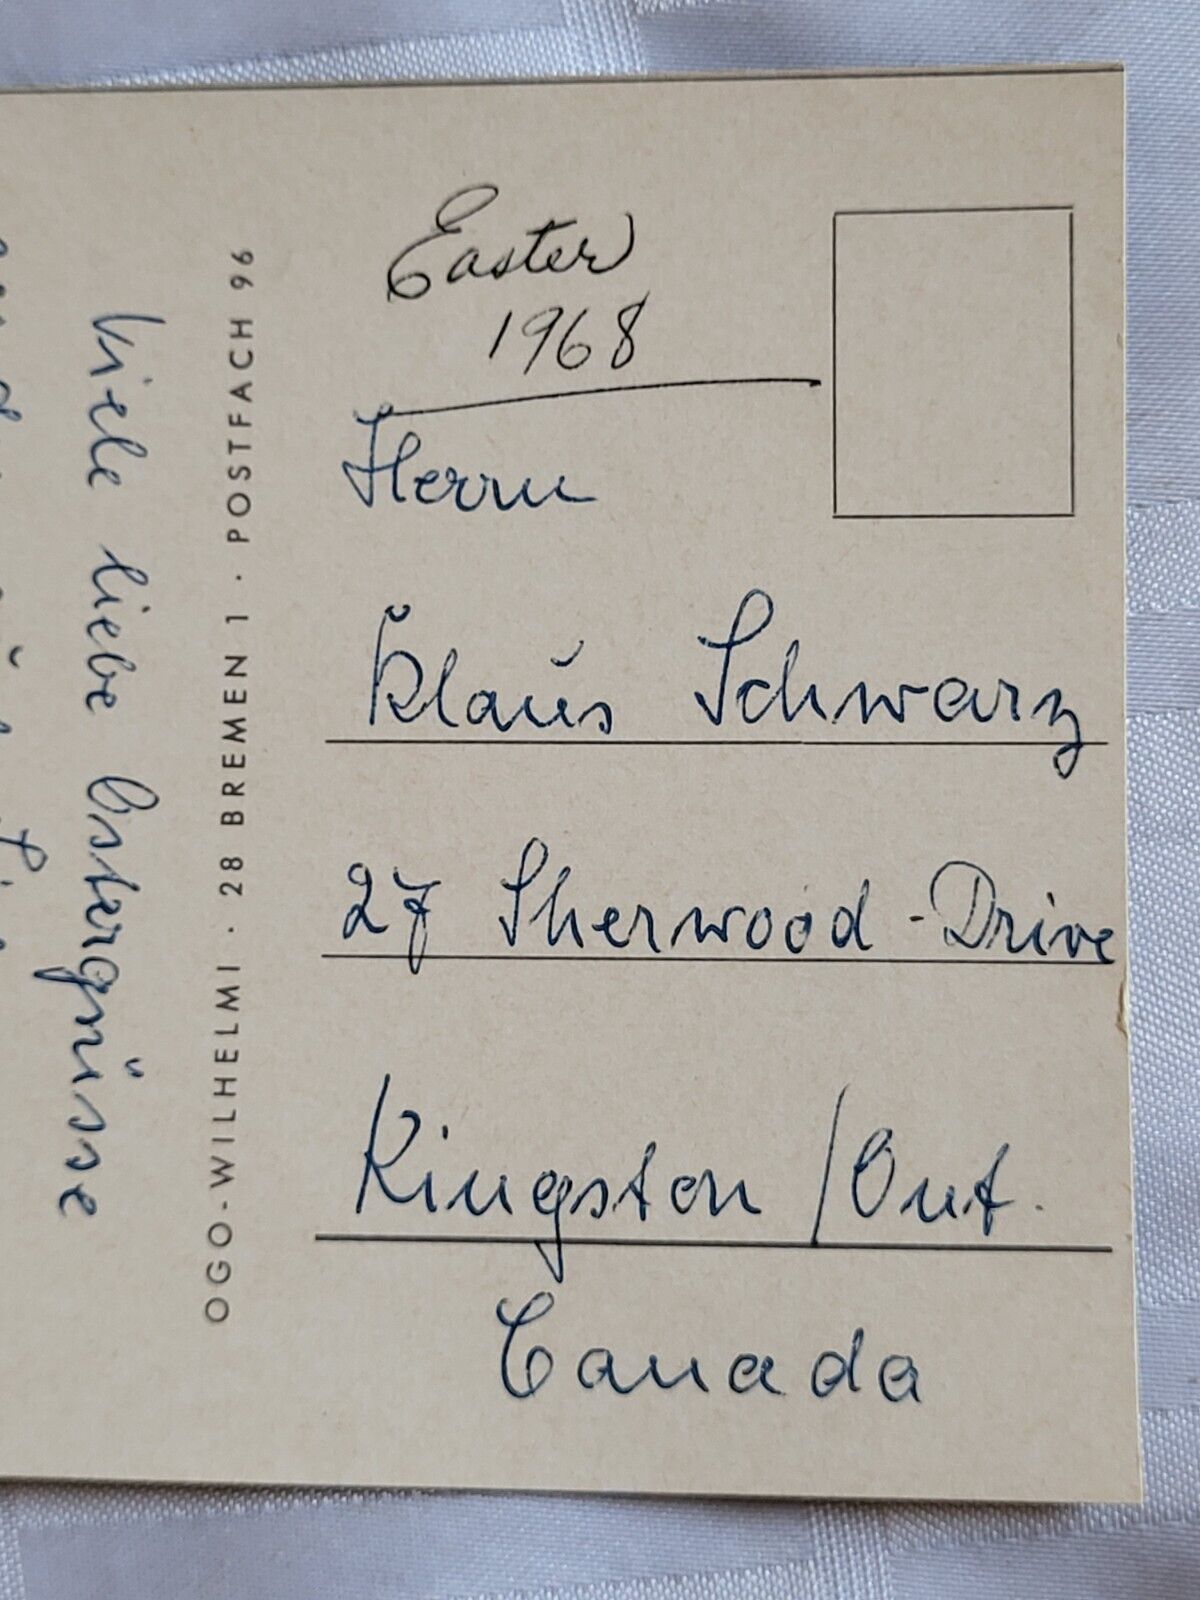 Easter
1968
Herrn
Klaus Schwarz
27 Sherwood-Drive
Kingston/Ont.
Canada
OGO-WILHELMI · 28 BREMEN 1 · POSTFACH 96
Viele liebe Ostergrüsse